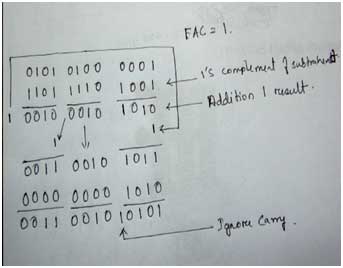 FAC = 1.
0101 0100 0001
1101 1110 1001 ← 1's complement of subtrahend
1 0010 0010 1010 ← Addition 1 result.
1 1
0011 0010 1011
0000 0000 1010
0011 0010 10101
Ignore Carry.